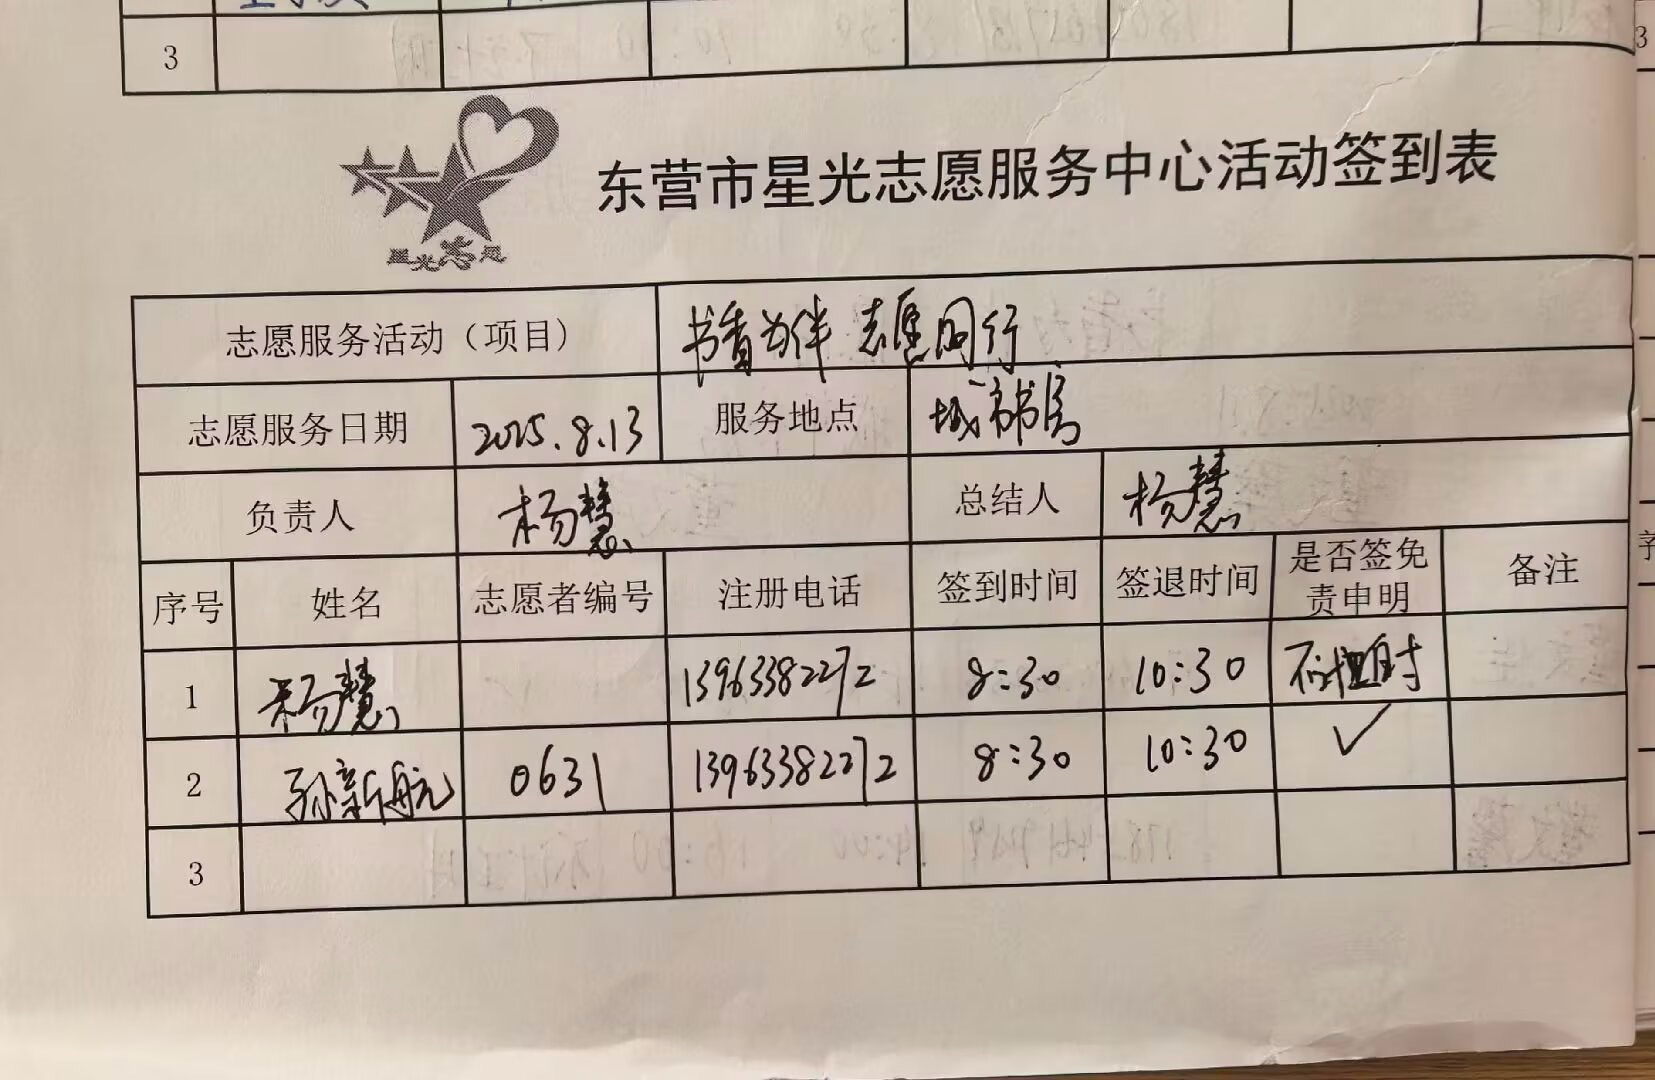 3
东营市星光志愿服务中心活动签到表
星光志愿
志愿服务活动（项目） 书香为伴 志愿同行
志愿服务日期 2025.8.13 服务地点 城市书房
负责人 杨慧 总结人 杨慧
序号 姓名 志愿者编号 注册电话 签到时间 签退时间 是否签免责申明 备注
1 杨慧 13963382272 8:30 10:30 不计时
2 孙新航 0631 13963382272 8:30 10:30 ✓
3